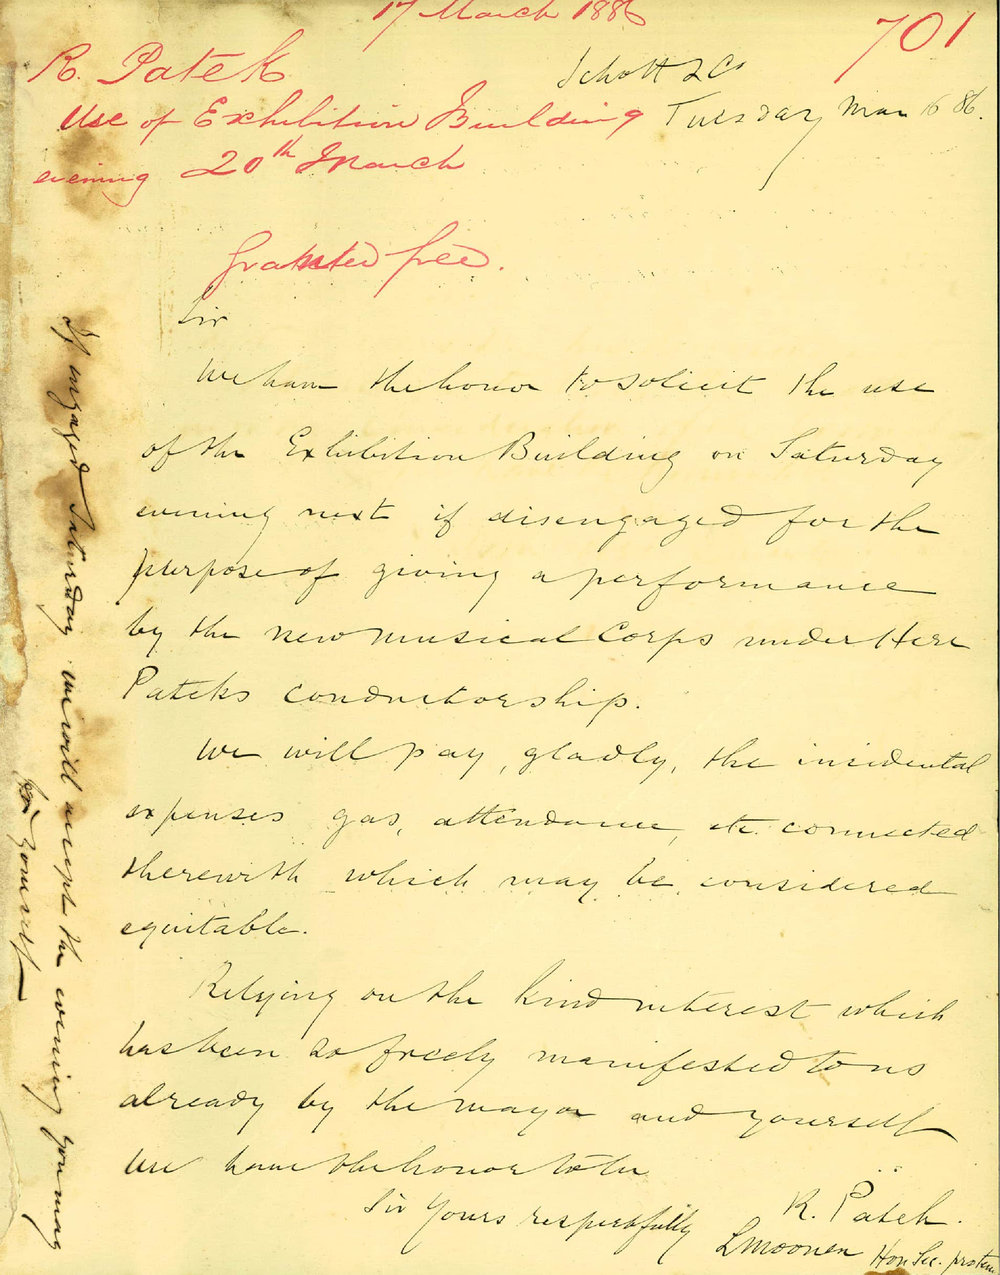 17 March 1886
701
R. Patek
Use of Exhibition Building
evening 20th March
Granted free.
Schott & Co
Tuesday Mar 16 86.
Sir
We have the honor to solicit the use
of the Exhibition Building on Saturday
evening next if disengaged for the
purpose of giving a performance
by the new musical Corps under Herr
Pateks conductorship.
We will pay, gladly, the incidental
expenses gas, attendance, etc connected
therewith which may be considered
equitable.
Relying on the kind interest which
has been so freely manifested to us
already by the mayor and yourself
We have the honor to be
Sir Yours respectfully
R. Patek.
L Moonen Hon Sec. protem
If engaged Saturday we will accept the evening you may